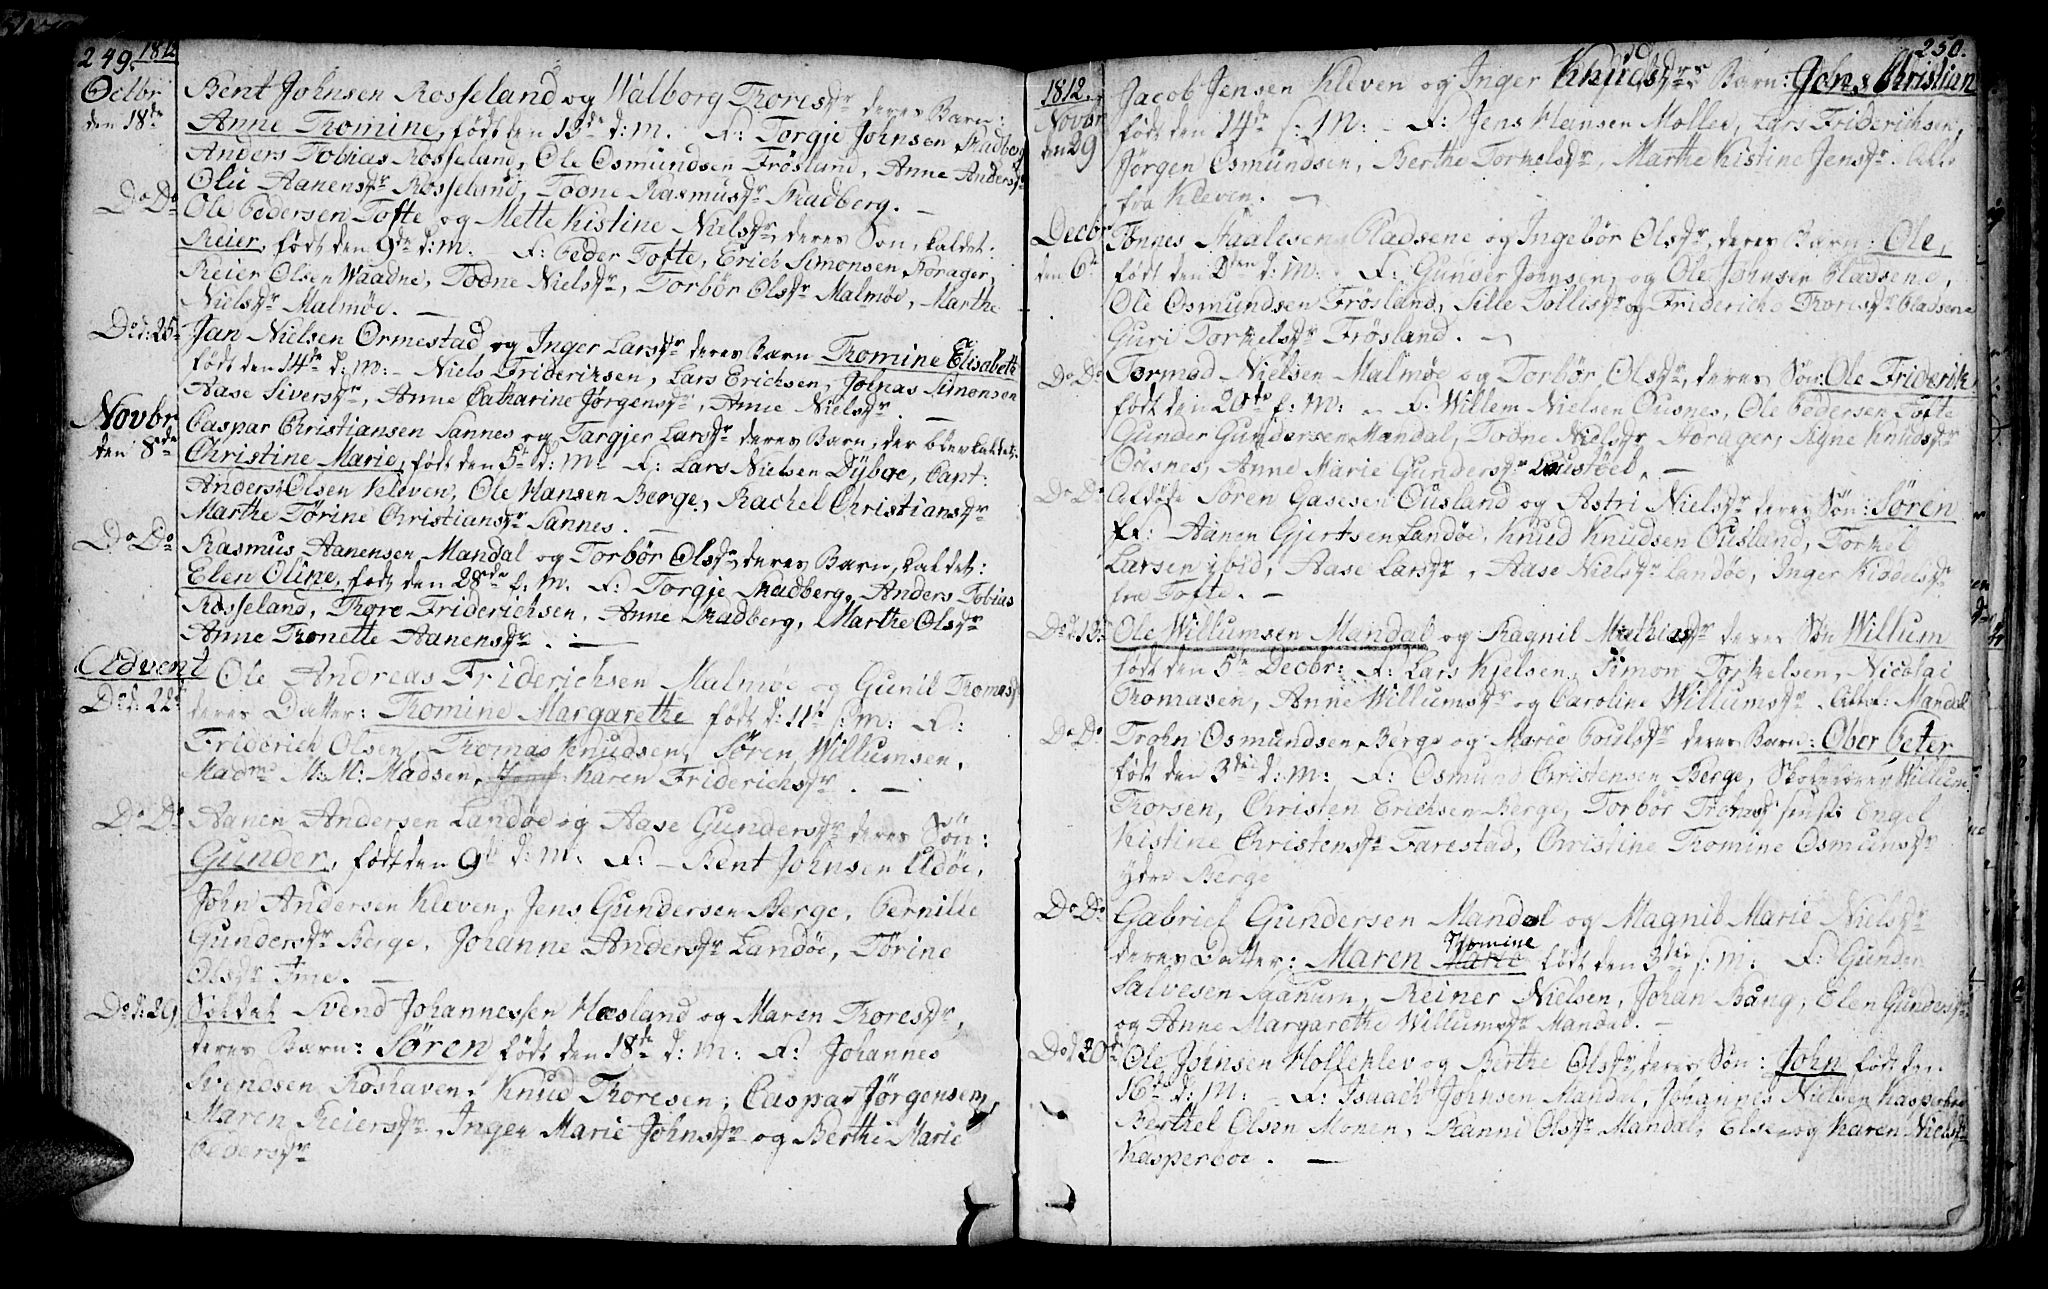 249. 1812
Octbr den 18de Bent Johnsen Rosseland og Walborg Toresdr deres Barn:
Anne Tomine, født den 13de d: M. F: Torgje Johnsen Skadberg
Anders Tobias Rosseland, Ole Osmundsen Frösland, Anne Andersdr
Olu Aanensdr Rosseland, Todne Rasmusdr Skadberg. –
Do Do Ole Pedersen Tofte og Mette Kistine Nielsdr, deres Søn, kaldet:
Reier, født den 9de d: M. F: Peder Tofte, Erich Simonsen Forager,
Reier Olsen Waadne, Todne Nielsdr, Torbör Olsdr Malmöe, Marthe
Nielsdr Malmöe. –
Do d: 25 Jan Nielsen Ormestad og Inger Larsdr deres Barn Tomine Elisabeth
født den 14de d: M: – Niels Friderichsen, Lars Erichsen, Johnas Simonsen
Aase Siversdr, Anne Catharine Jörgensdr, Anne Nielsdr. –
Novbr den 8de Caspar Christiansen Sannes og Targjer Larsdr deres Barn, der blev kaldet:
Christine Marie, født den 5te d: M: F: Lars Nielsen Dÿboe, Capt:
Anders Olsen Kleven, Ole Hansen Berge, Rachel Christiansdr
Marthe Törine Christiansdr Sannes. –
Do Do Rasmus Aanensen Mandal og Torbör Olsdr, deres Barn, kaldet:
Elen Oline, født den 28de f: M. F: Torgje Skadberg, Anders Tobias
Rosseland, Tore Friderichsen, Anne Skadberg, Marthe Olsdr
Anne Tonette Aanensdr. –
Advent
Do d: 22 Ole Andreas Friderichsen Malmöe og Gunil Thomasdr
deres Datter: Tomine Margarethe født d: 11te f: M: F:
Friderich Olsen, Thomas Knudsen, Sören Willumsen,
Madme M: M: Madsen, Karen Friderichsdr. –
Do Do Aanen Andersen Landöe og Aase Gundersdr deres Søn:
Gunder, født den 9de d: M: F: – Bent Johnsen Udöe,
John Andersen Kleven, Jens Gundersen Berge, Pernille
Gundersdr Berge, Johanne Andersdr Landöe, Törine
Olsdr Ime. –
Do d: 29 Soldat Svend Johannessen Hæsland og Maren Toresdr,
deres Barn: Sören født den 18de d: M: F: Johannes
Svendsen Roshaven, Knud Toresen, Caspar Jörgensen,
Maren Reiersdr, Inger Marie Johnsdr og Berthe Marie
Pedersdr
250.
1812. Novbr den 29 Jacob Jensen Kleven og Inger Knudsdr deres Barn: Jens Christian
født den 14de f: M: – F: Jens Hansen Moller, Lars Friderichsen,
Jörgen Osmundsen, Berthe Torkelsdr, Marthe Kistine Jensdr. Alle
fra Kleven. –
Decbr den 6te Tönnes Staalesen Pladsene og Ingebör Olsdr, deres Barn: Ole,
født den 2den d: M: F: Gunder Johnsen, og Ole Johnsen Pladsene,
Ole Osmundsen Frösland, Sille Tollisdr og Fridericke Toresdr Pladsene
Guri Torkelsdr Frösland. –
Do Do Tormod Nielsen Malmöe og Torbör Olsdr, deres Søn: Ole Friderik
født den 20de f: M: – F: Willem Nielsen Ousnes, Ole Pedersen Tofte
Gunder Gundersen Mandal, Todne Nielsdr Forager, Signe Knudsdr
Ousnes, Anne Marie Gundersdr –
Do Do Afdöde Sören Gasesen Ousland og Astri Nielsdr deres Søn: Sören
F: Aanen Gjertsen Landöe, Knud Knudsen Ousland, Torkel
Larsen ibid, Aase Larsdr, Aase Nielsdr Landöe, Inger Kiddelsdr
fra Tofte. –
Do d: 13de Ole Willumsen Mandal og Ragnil Mathiasdr deres Søn Willum
født den 5te Decbr: F: Lars Kjelsen, Simon Torkelsen, Nicolai
Thomasen, Anne Willumsdr og Caroline Willumsdr. Alle: Mandal
Do Do Trohn Osmundsen Berge og Marie Poulsdr deres Barn: Ober Peter
født den 3die d: M: F: Osmund Christensen Berge, Skolelærer Willum
Thorsen, Christen Erichsen Berge, Torbör Engel
Kistine Christensdr Farestad, Christine Tomine Osmundsdr
ydre Berge
Do Do Gabriel Gundersen Mandal og Magnil Marie Nielsdr
deres Datter: Maren Marie Tomine født den 3die f: M: F: Gunder
Salvesen Saanum, Reiner Nielsen, Johan Bång, Elen Gundersdr
og Anne Margarethe Willumsdr Mandal. –
Do d 20de Ole Johnsen Holleklev og Berthe Olsdr deres Søn: John født den
16de d: M: – F: Isaach Johnsen Mandal, Johannes Nielsen Kasperboe
Berthel Olsen Monen, Ranni Olsdr Mandal, Else og Karen Nielsdr
Kasperboe. –